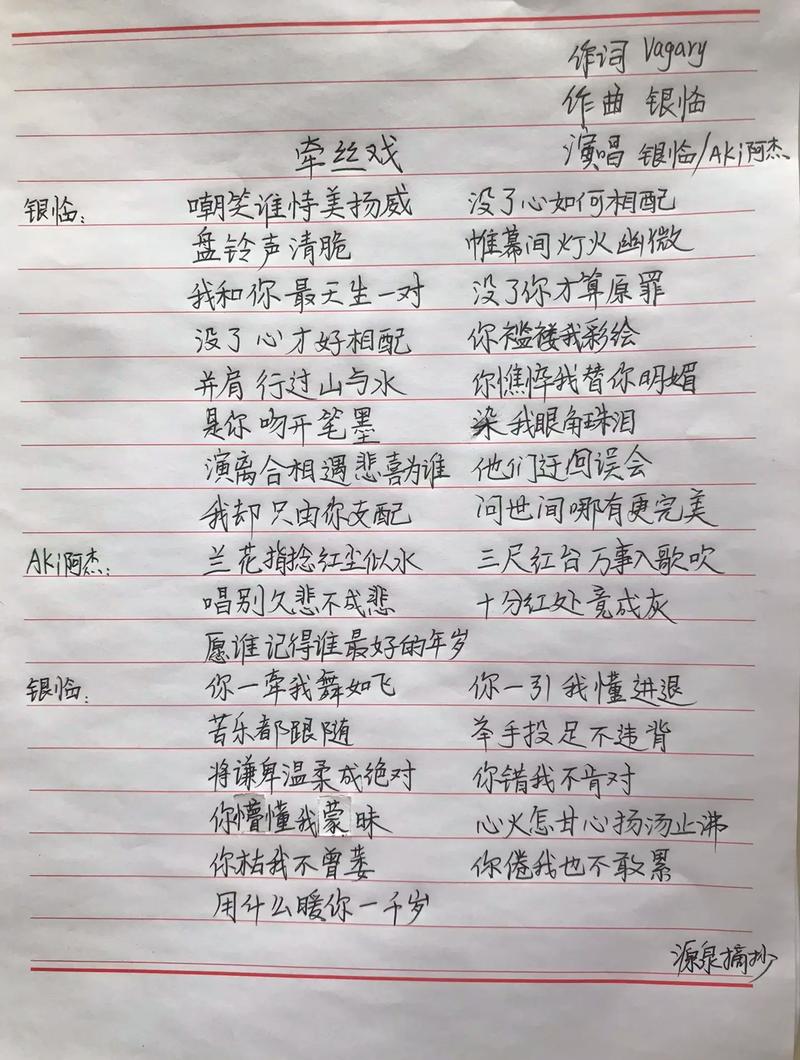 作词 Vagary
作曲 银临
牵丝戏 演唱 银临/AKi阿杰
银临： 嘲笑谁恃美扬威 没了心如何相配
盘铃声清脆 帷幕间灯火幽微
我和你最天生一对 没了你才算原罪
没了心才好相配 你褴褛我彩绘
并肩行过山与水 你憔悴我替你明媚
是你吻开笔墨 染我眼角珠泪
演离合相遇悲喜为谁 他们迂回误会
我却只由你支配 问世间哪有更完美
AKi阿杰： 兰花指捻红尘似水 三尺红台万事入歌吹
唱别久悲不成悲 十分红处竟成灰
愿谁记得谁最好的年岁
银临： 你一牵我舞如飞 你一引我懂进退
苦乐都跟随 举手投足不违背
将谦卑温柔成绝对 你错我不肯对
你懵懂我蒙昧 心火怎甘心扬汤止沸
你枯我不曾萎 你倦我也不敢累
用什么暖你一千岁
源泉摘抄